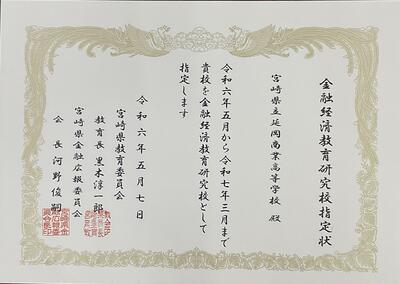 金融経済教育研究校指定状
宮崎県立延岡商業高等学校 殿
令和六年五月から令和七年三月まで
貴校を金融経済教育研究校として
指定します
令和六年五月七日
宮崎県教育委員会
教育長 黒木淳一郎
宮崎県金融広報委員会
会長 河野俊嗣